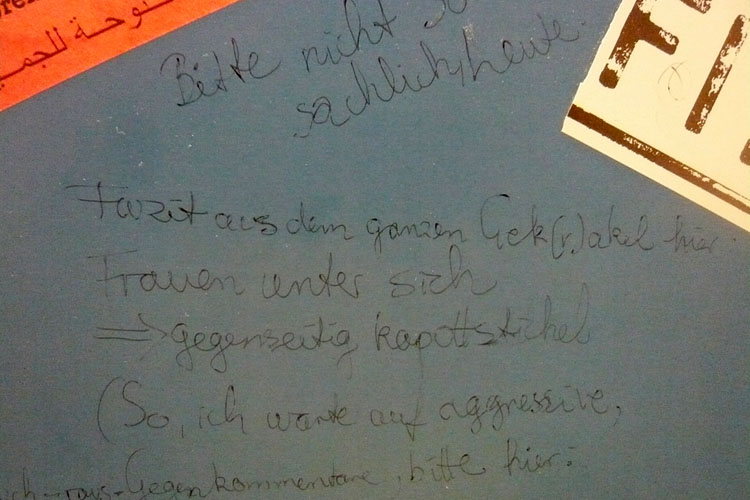 لوحة للجمي
Bitte nicht so
sachlich, heute.
FI
Fazit aus dem ganzen Gek(r)akel hier:
Frauen unter sich
⇒ gegenseitig kaputtstichel
(So, ich warte auf aggressive,
Gegenkommentare, bitte hier: